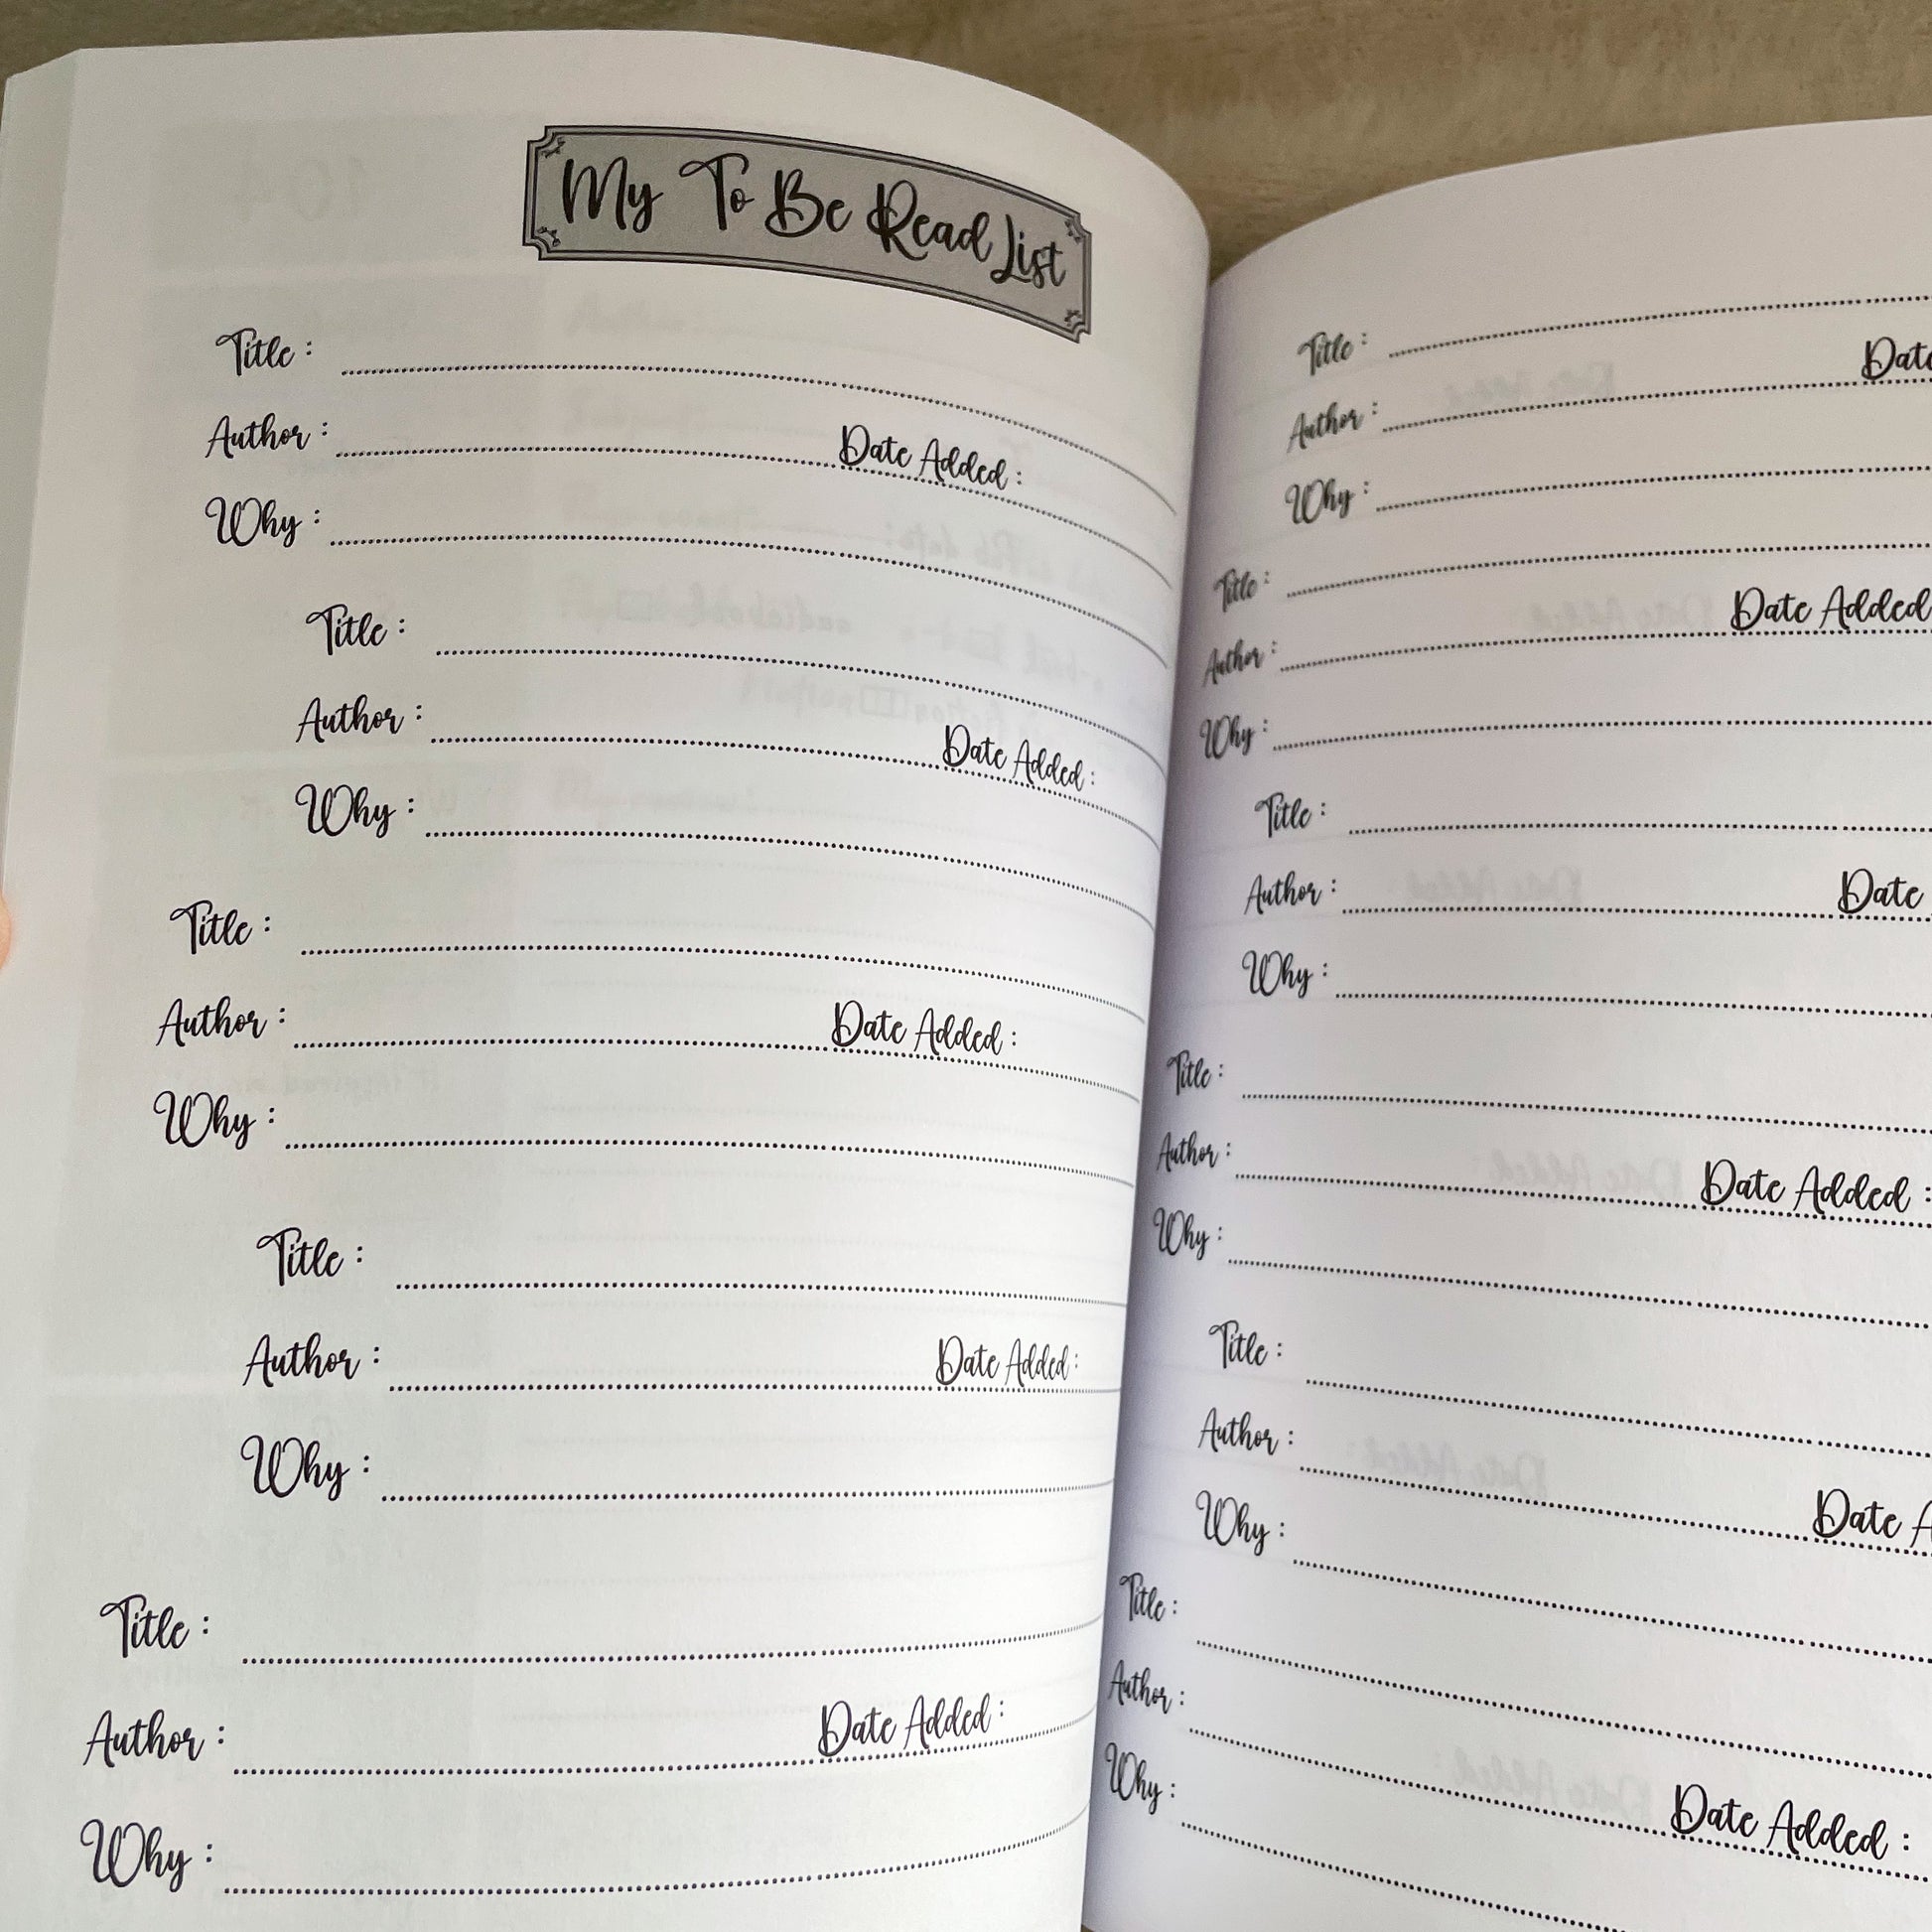 My To Be Read List
Title :
Author : Date Added :
Why :
Title :
Author : Date Added :
Why :
Title :
Author : Date Added :
Why :
Title :
Author : Date Added :
Why :
Title :
Author : Date Added :
Why :
Title :
Author : Date
Why :
Title :
Author : Date Added
Why :
Title :
Author : Date
Why :
Title :
Author : Date Added :
Why :
Title :
Author : Date A
Why :
Title :
Author :
Why : Date Added :